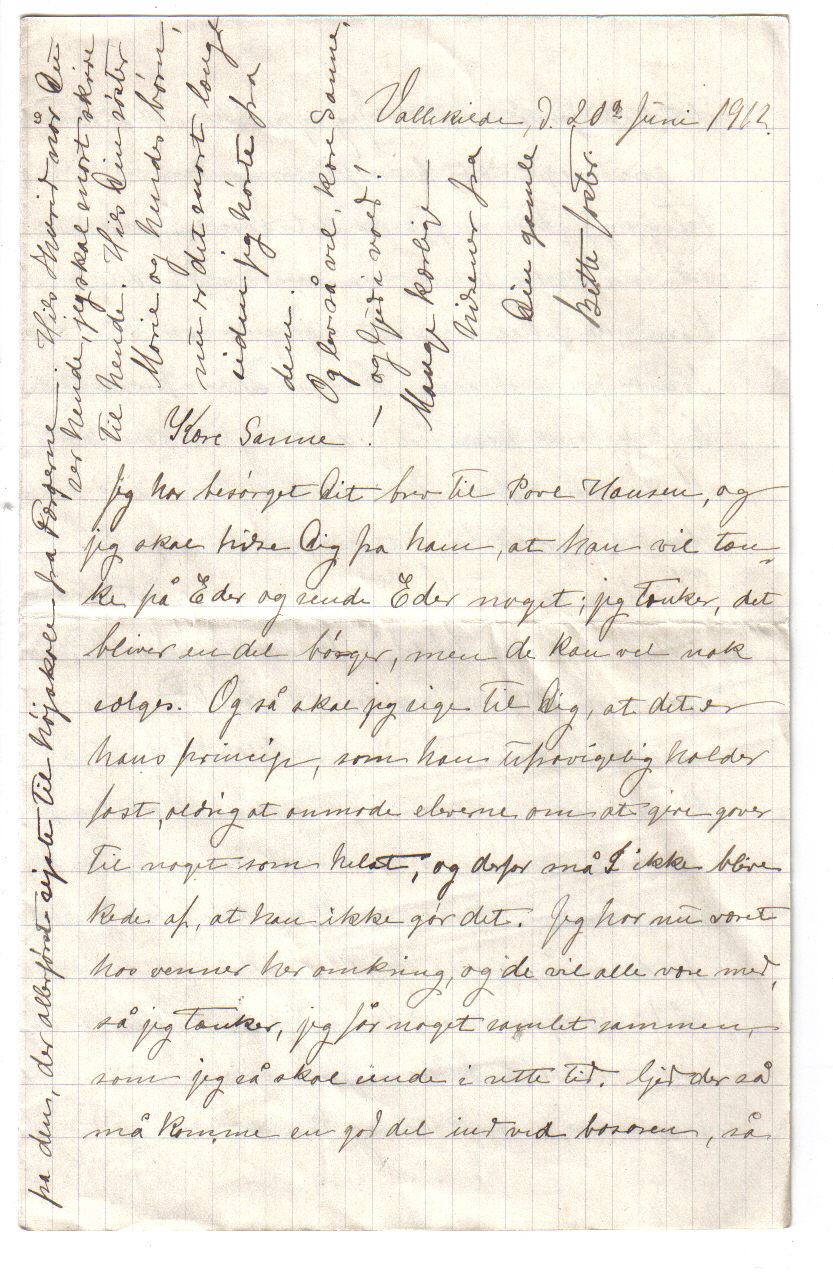 Vallekilde, d. 20de Juni 1912.
Kære Sanne!
Jeg har besørget Dit brev til Povl Hansen, og
jeg skal hilse Dig fra ham, at han vil tæn-
ke på Eder og sende Eder noget; jeg tænker, det
bliver en del bøger, men de kan vel nok
sælges. Og så skal jeg sige til Dig, at det er
hans princip, som han ufravigelig holder
fast, aldrig at anmode eleverne om at give gaver
til noget som helst; og derfor må I ikke blive
kede af, at han ikke gør det. Jeg har nu været
hos venner her omkring, og de vil alle være med,
så jeg tænker, jeg får noget samlet sammen,
som jeg så skal sende i rette tid. Gid der så
må komme en god del ind ved basaren, så
på dem, der allerførst rejste til højskole fra Færøerne. Hils når Du
ser hende, jeg skal snart skrive
til hende. Hils Din søster
Marie og hendes børn,
nu er det snart længe
siden jeg hørte fra
dem.
Og lev så vel, kære Sanne,
og Gud i vold!
Mange kærlige
hilsener fra
Din gamle
Bette faster.